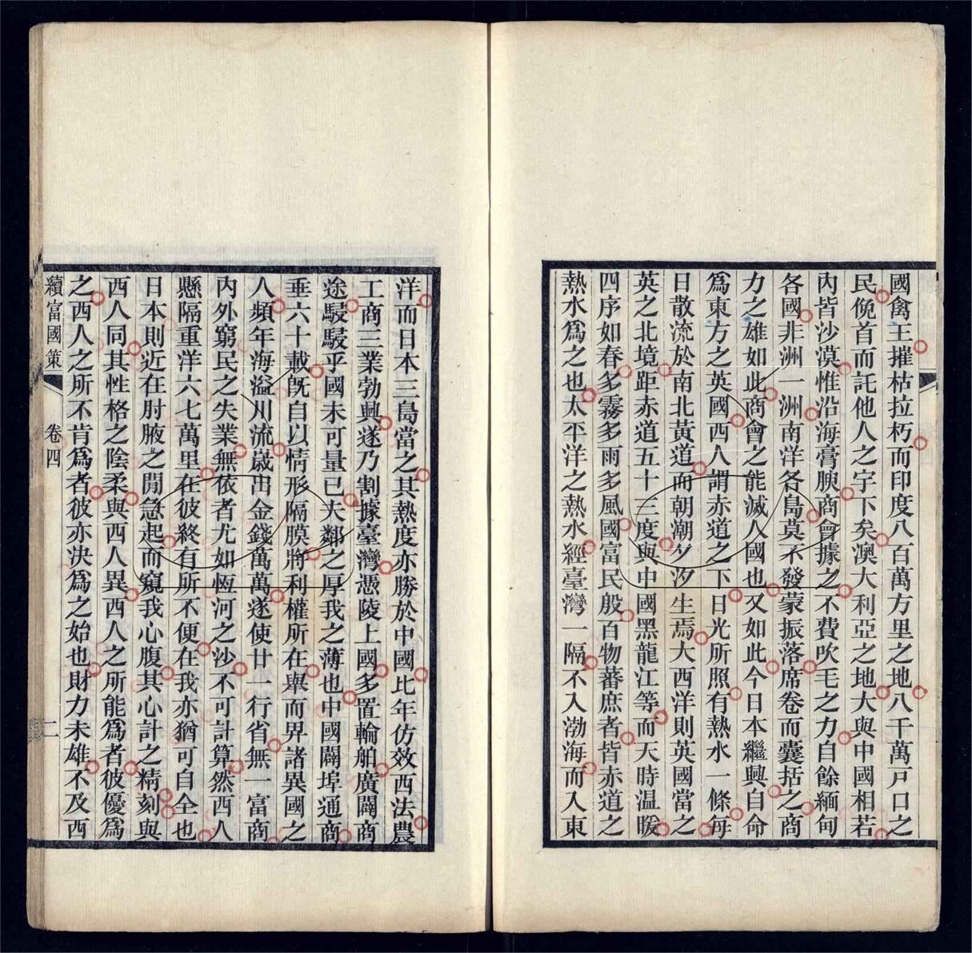 國禽王摧枯拉朽而印度八百萬方里之地八千萬戶口之
民俛首而託他人之宇下矣澳大利亞之地大與中國相若
內皆沙漠惟沿海膏腴商會據之不費吹毛之力自餘緬甸
各國非洲一洲南洋各島莫不發蒙振落席卷而囊括之商
力之雄如此商會之能滅人國也又如此今日本繼興自命
爲東方之英國西人謂赤道之下日光所照有熱水一條每
日散流於南北黃道而朝潮夕汐生焉大西洋則英國當之
英之北境距赤道五十三度與中國黑龍江等而天時温暖
四序如春多霧多雨多風國富民殷百物蕃庶者皆赤道之
熱水爲之也太平洋之熱水經臺灣一隔不入渤海而入東
洋而日本三島當之其熱度亦勝於中國比年仿效西法農
工商三業勃興遂乃割據臺灣憑陵上國多置輪舶廣闢商
途駸駸乎國未可量已夫鄰之厚我之薄也中國闢埠通商
垂六十載旣自以情形隔膜將利權所在舉而界諸異國之
人頻年海溢川流歲出金錢萬萬遂使廿一行省無一富商
內外窮民之失業無依者尤如恆河之沙不可計算然西人
懸隔重洋六七萬里在彼終有所不便在我亦猶可自全也
日本則近在肘腋之閒急起而窺我心腹其心計之精刻與
西人同其性格之陰柔與西人異西人之所能爲者彼優爲
之西人之所不肯爲者彼亦決爲之始也財力未雄不及西
續富國策
卷四
二